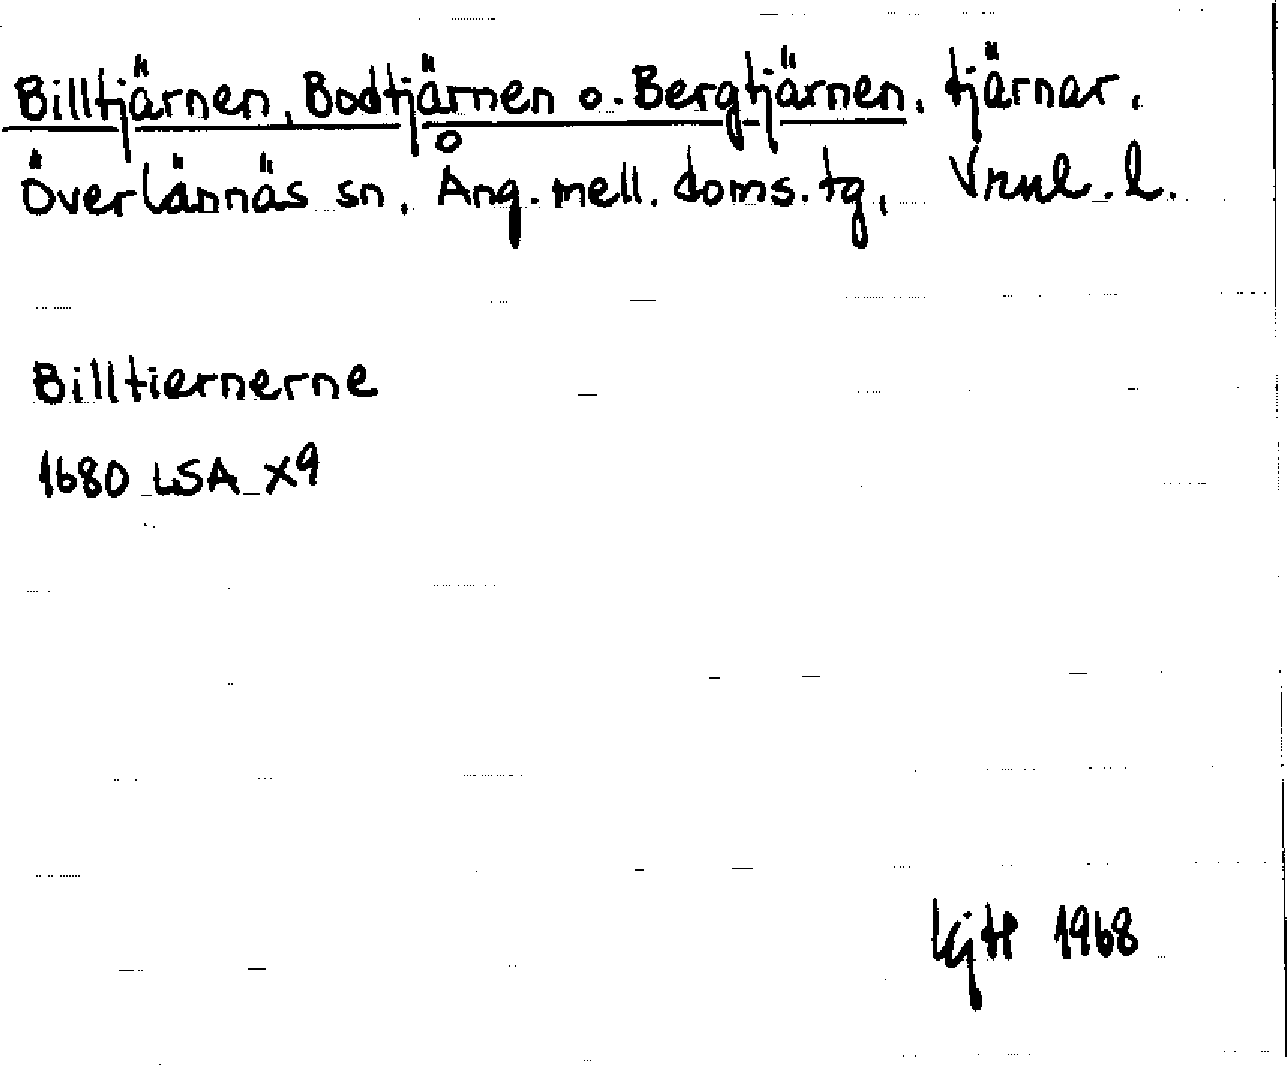 Billtjärnen, Bodtjärnen o. Bergtjärnen, tjärnar,
Överlännäs sn, Ång. mell. doms. tg, Vnul. l.
Billtiernerne
1680 LSA X9
1968